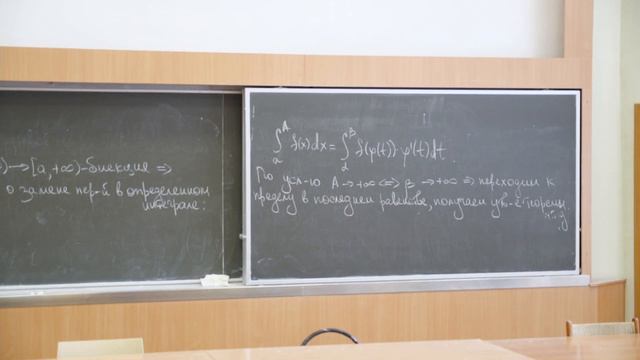 ) → [a, +∞) - биекция ⇒
о замене пер-й в определенном
интеграле:
∫ₐᴬ f(x)dx = ∫_α^B f(φ(t))·φ'(t)dt.
По усл-ю A → +∞ ⇔ B → +∞ ⇒ переходим к
пределу в последнем равенстве, получаем утв-е теоремы
ч.т.д